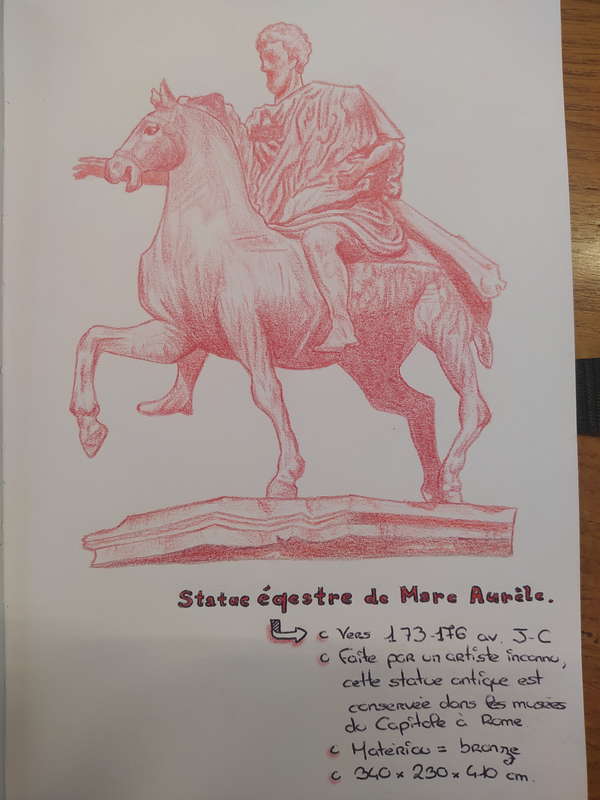 Statue éqestre de Marc Aurèle.
c Vers 173-176 av. J-C
c Faite par un artiste inconnu,
cette statue antique est
conservée dans les musées
du Capitole à Rome
c Matériau = bronze
c 340 x 230 x 410 cm.